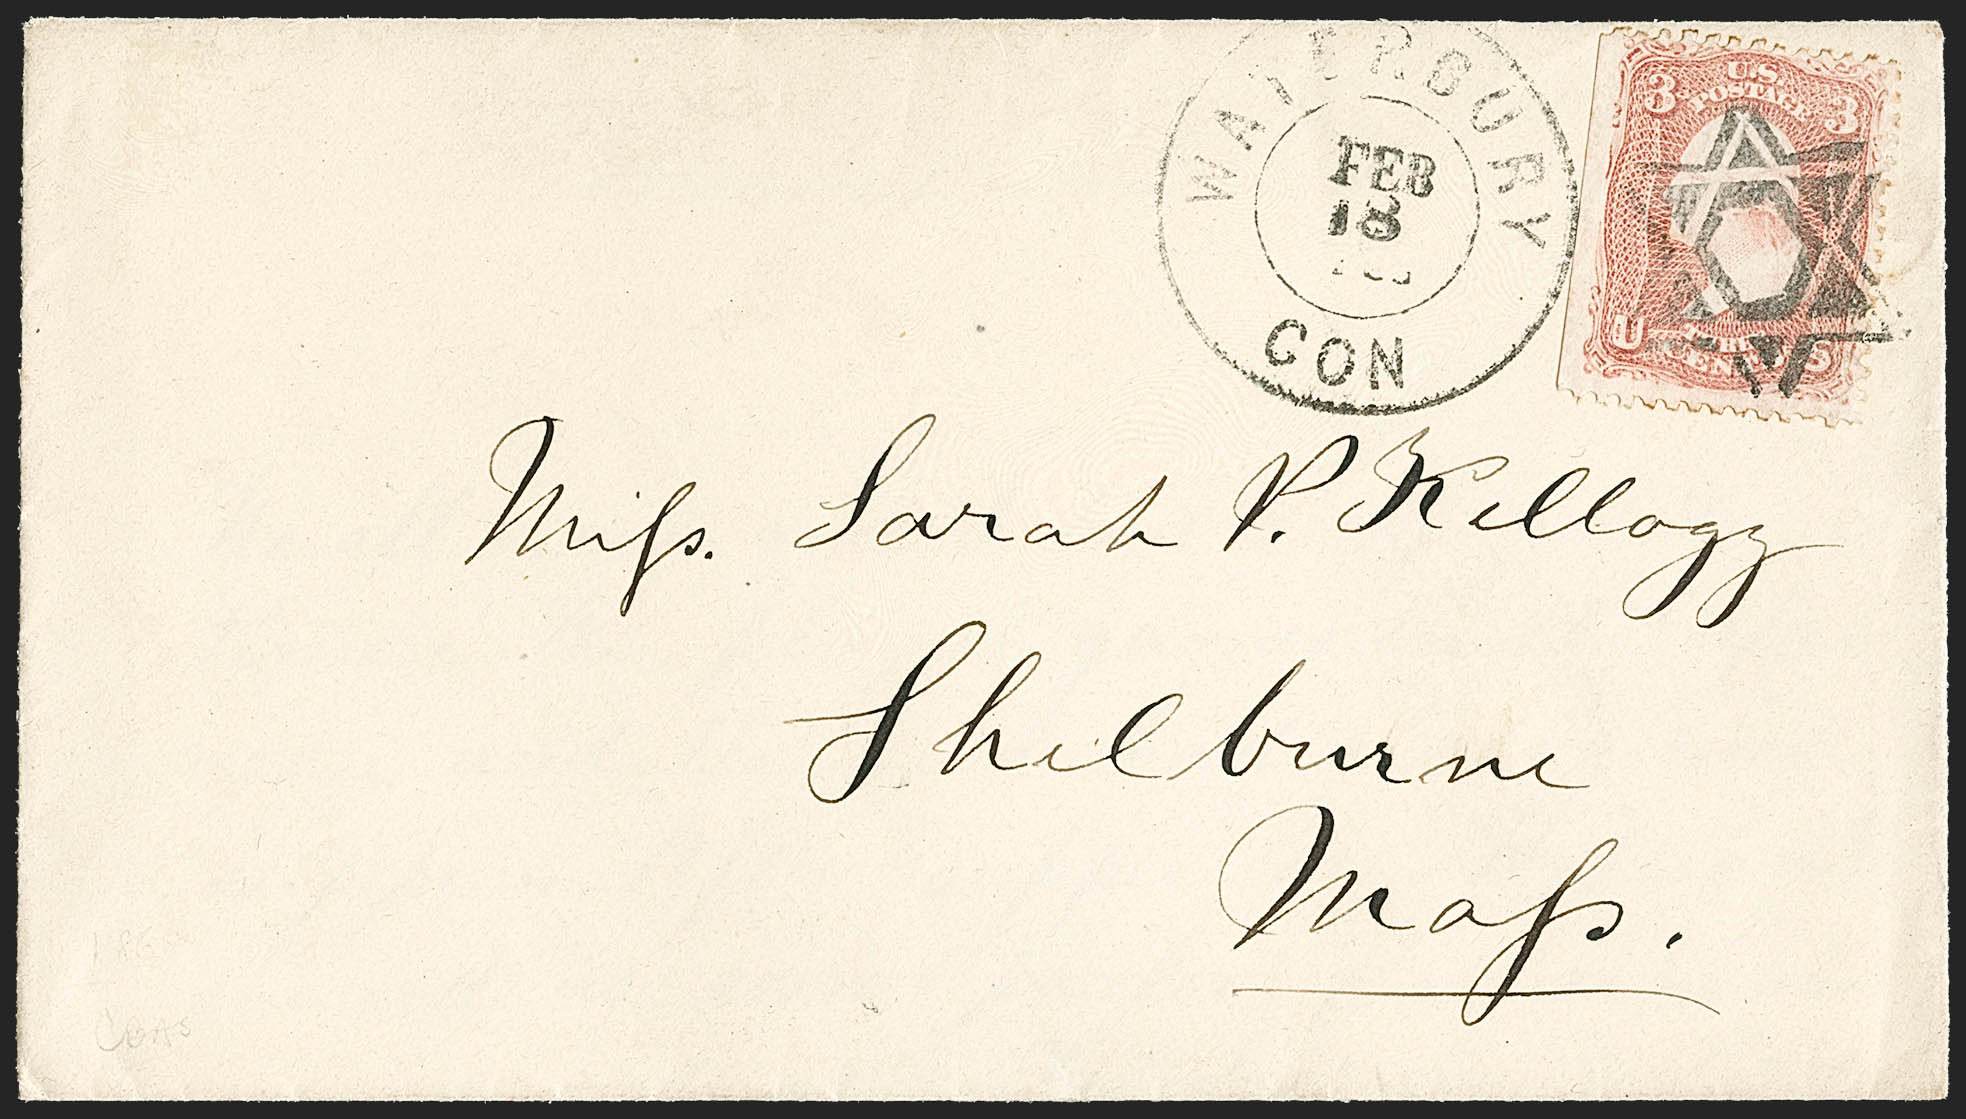 WATERBURY
FEB
18
CON
3 U.S. POSTAGE 3
U S
CENTS
Miſs. Sarah P. Kellogg
Shelburne
Maſs.